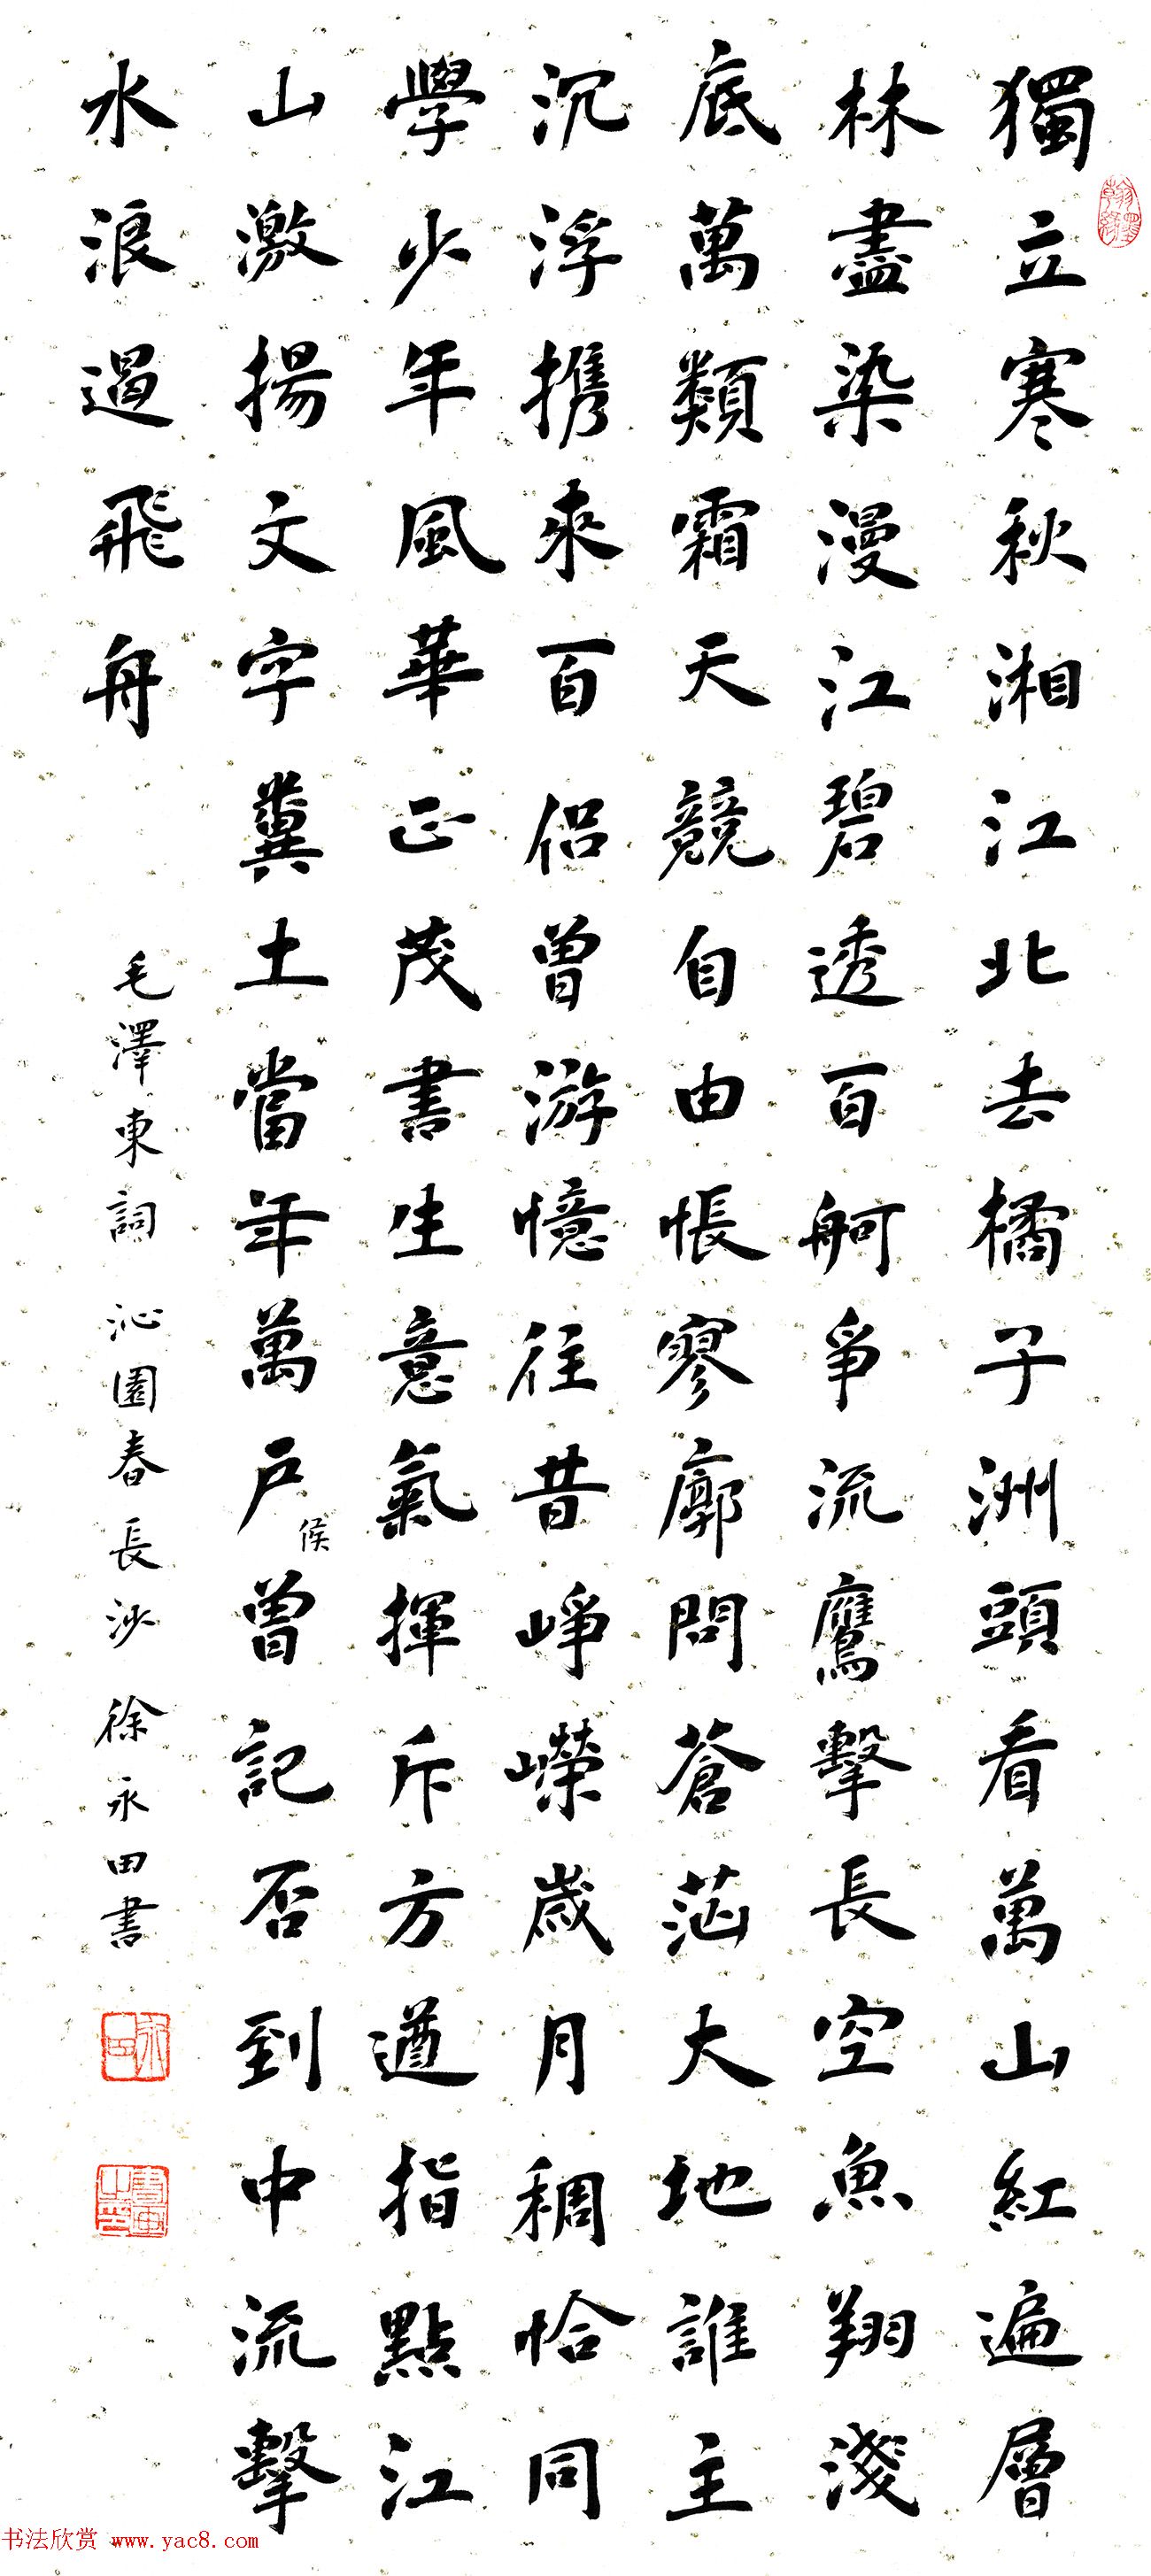 獨立寒秋湘江北去橘子洲頭看萬山紅遍層
林盡染漫江碧透百舸爭流鷹擊長空魚翔淺
底萬類霜天競自由悵寥廓問蒼茫大地誰主
沉浮携來百侣曾游憶往昔崢嶸歲月稠恰同
學少年風華正茂書生意氣揮斥方遒指點江
山激揚文字糞土當年萬户侯曾記否到中流擊
水浪遏飛舟
毛澤東詞 沁園春長沙 徐永田書
翰墨緣
书法欣赏 www.yac8.com